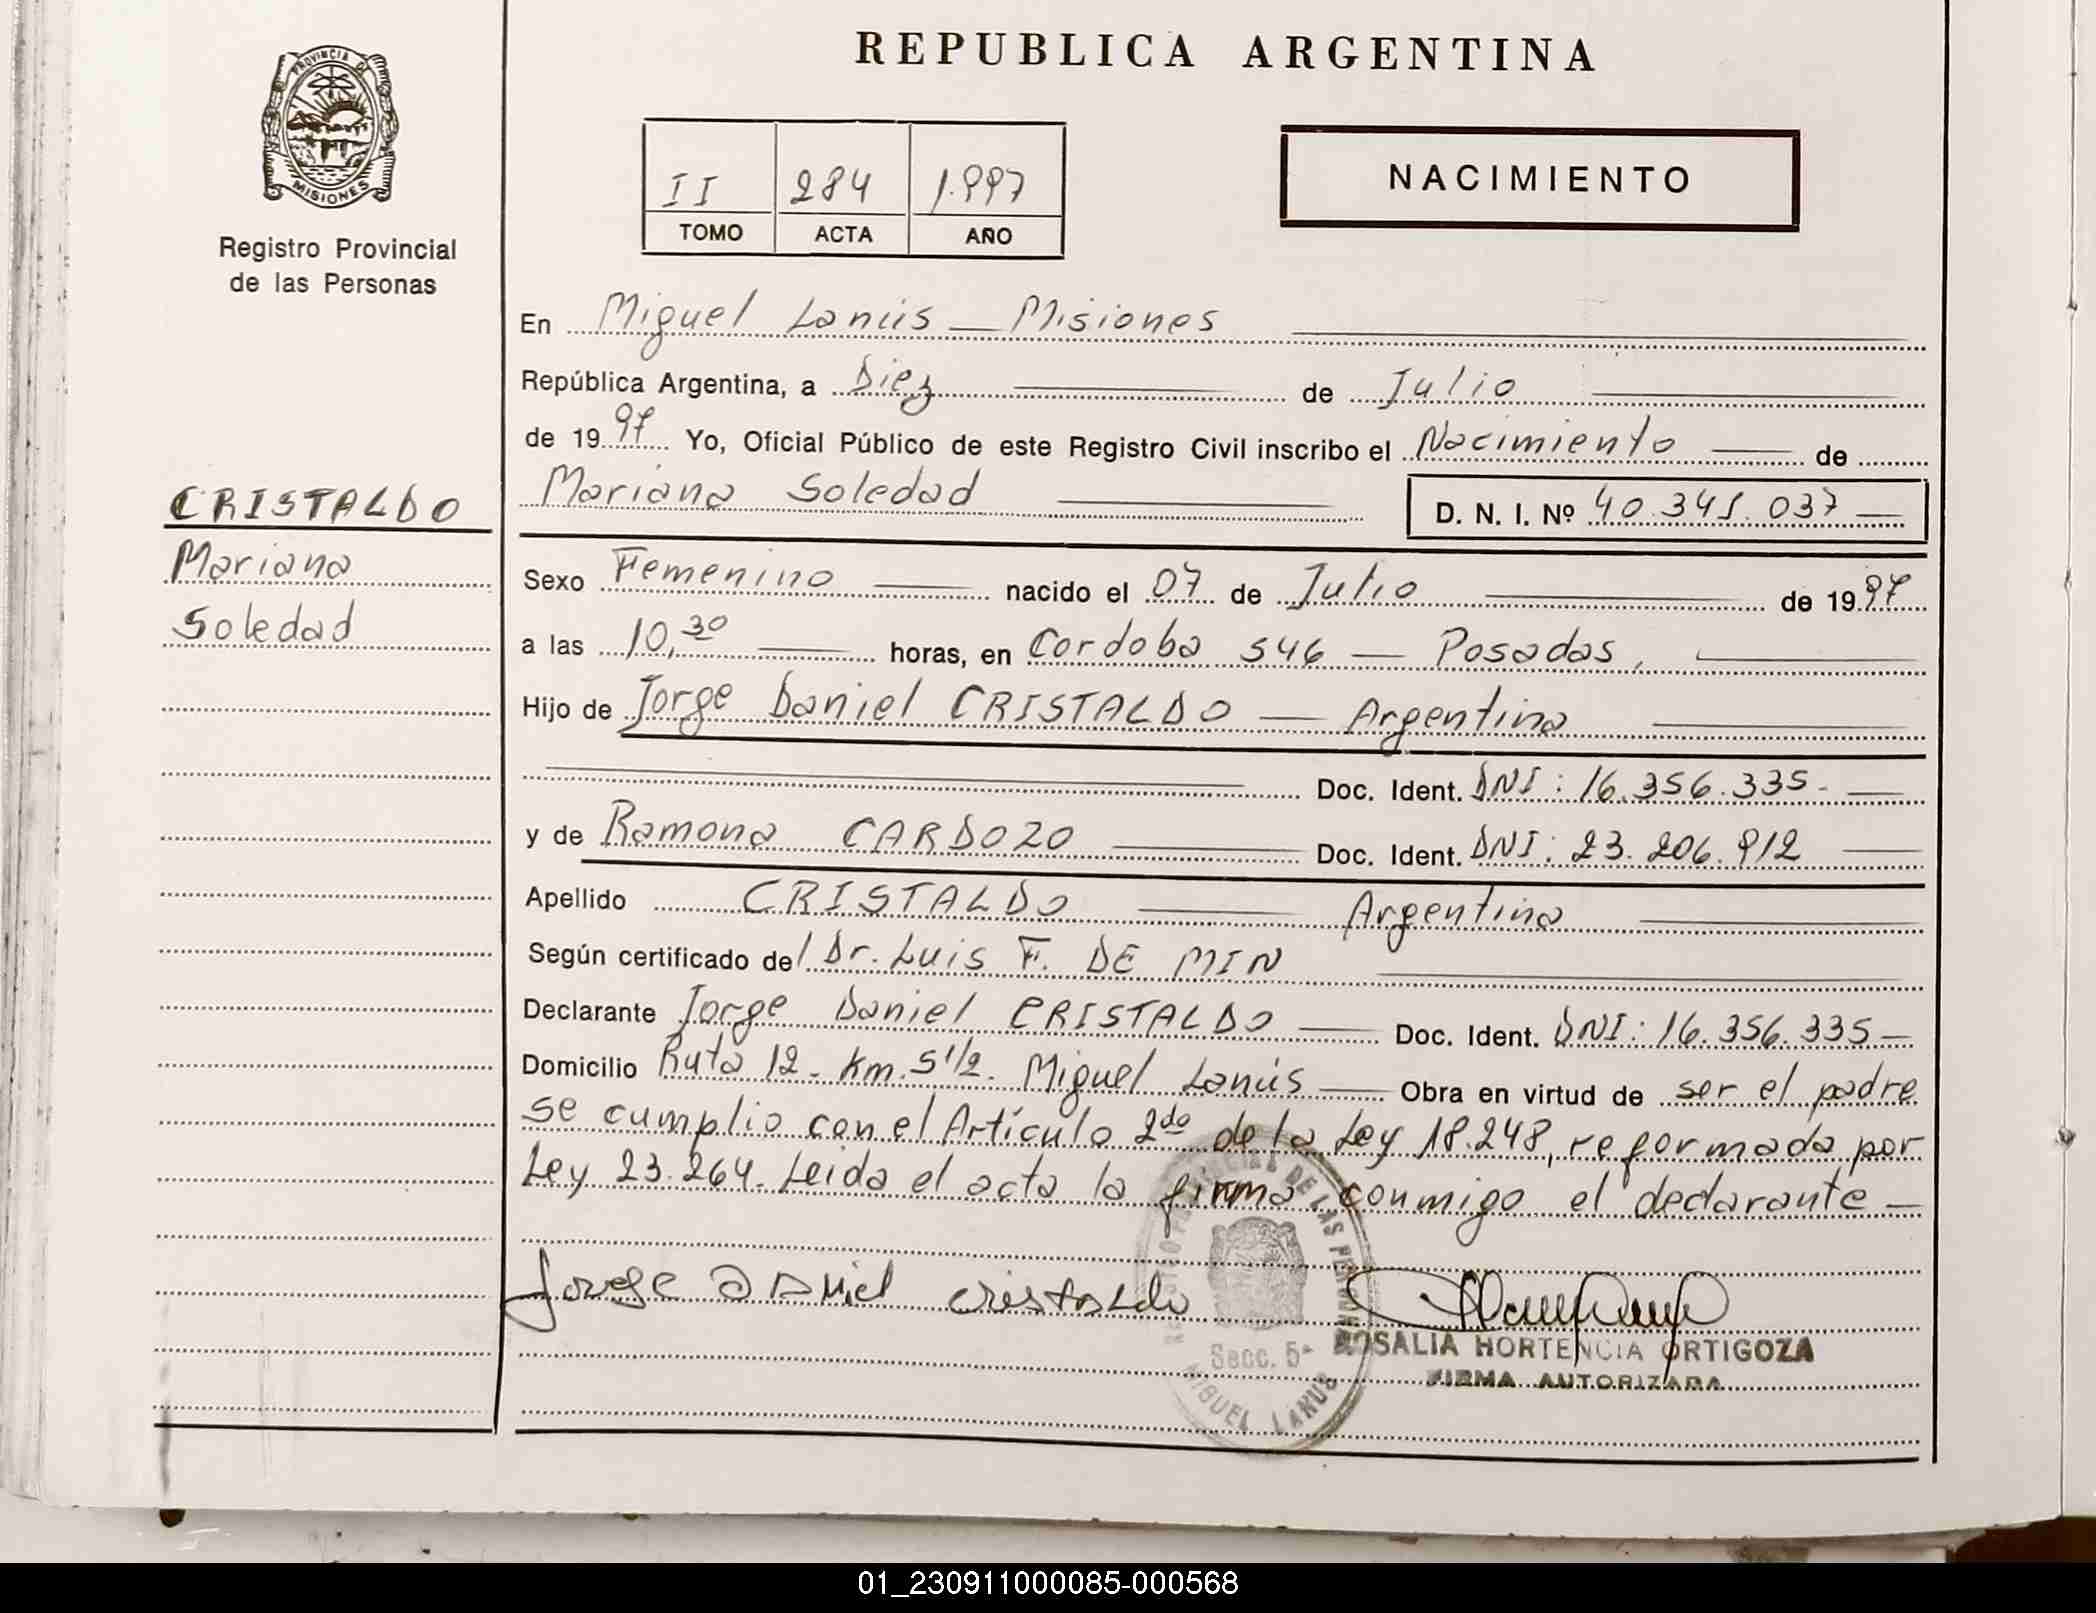 REPUBLICA ARGENTINA
PROVINCIA DE
MISIONES
Registro Provincial
de las Personas
II 284 1.997
TOMO ACTA AÑO
NACIMIENTO
En Miguel Lanús — Misiones
República Argentina, a Diez de Julio
de 1997 Yo, Oficial Público de este Registro Civil inscribo el Nacimiento — de
Mariana Soledad — D. N. I. Nº 40.341.037 —
CRISTALDO
Mariana
Soledad
Sexo Femenino — nacido el 07 de Julio — de 1997
a las 10,30 — horas, en Cordoba 546 — Posadas,
Hijo de Jorge Daniel CRISTALDO — Argentina
Doc. Ident. DNI: 16.356.335.-
y de Ramona CARDOZO — Doc. Ident. DNI: 23.206.912
Apellido CRISTALDO — Argentina
Según certificado del Dr. Luis F. DE MIN
Declarante Jorge Daniel CRISTALDO — Doc. Ident. DNI: 16.356.335 —
Domicilio Ruta 12 - Km. 5 1/2. Miguel Lanús — Obra en virtud de ser el padre
se cumplio con el Artículo 2do de la Ley 18.248, reformada por
Ley 23.264. Leida el acta la firma conmigo el declarante —
Jorge Daniel Cristaldo
DE LAS PERSONAS
Secc. 5ª
MIGUEL LANUS
ROSALIA HORTENCIA ORTIGOZA
FIRMA AUTORIZADA
01_230911000085-000568